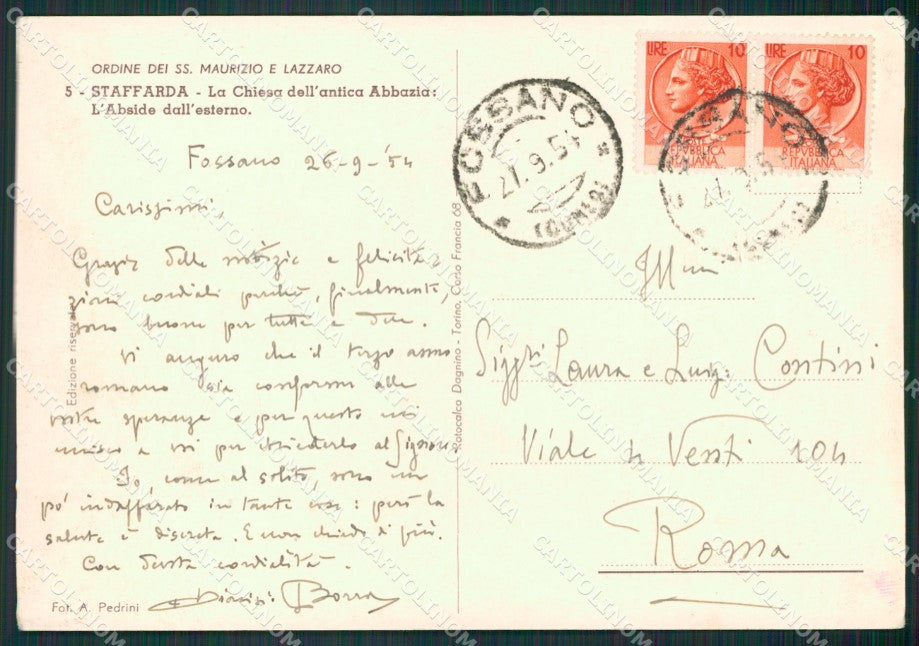 ORDINE DEI SS. MAURIZIO E LAZZARO
5 - STAFFARDA - La Chiesa dell'antica Abbazia:
L'Abside dall'esterno.
Fossano 26-9-'54
Carissimi,
Grazie delle notizie e felicita-
zioni cordiali perchè, finalmente,
sono buone per tutti e due.
Vi auguro che il terzo anno
romano sia conforme alle
vostre speranze e per questo mi
unisco a voi per chiederlo al Signore.
Io, come al solito, sono un
po' indaffarato in tante cose: però la
salute è discreta. E non chiedo di più.
Con cordialità.
Dionigi Borra
Fot. A. Pedrini
Edizione riservata
Rotocalco Dagnino - Torino, Corso Francia 68
FOSSANO
27.9.54
(CUNEO)
LIRE 10
REPUBBLICA
ITALIANA
LIRE 10
REPUBBLICA
ITALIANA
FOSSANO
27.9.54
(CUNEO)
Ill.mi
Sigg.ri Laura e Luigi Contini
Viale 4 Venti 104
Roma
CARTOLINOMANIA